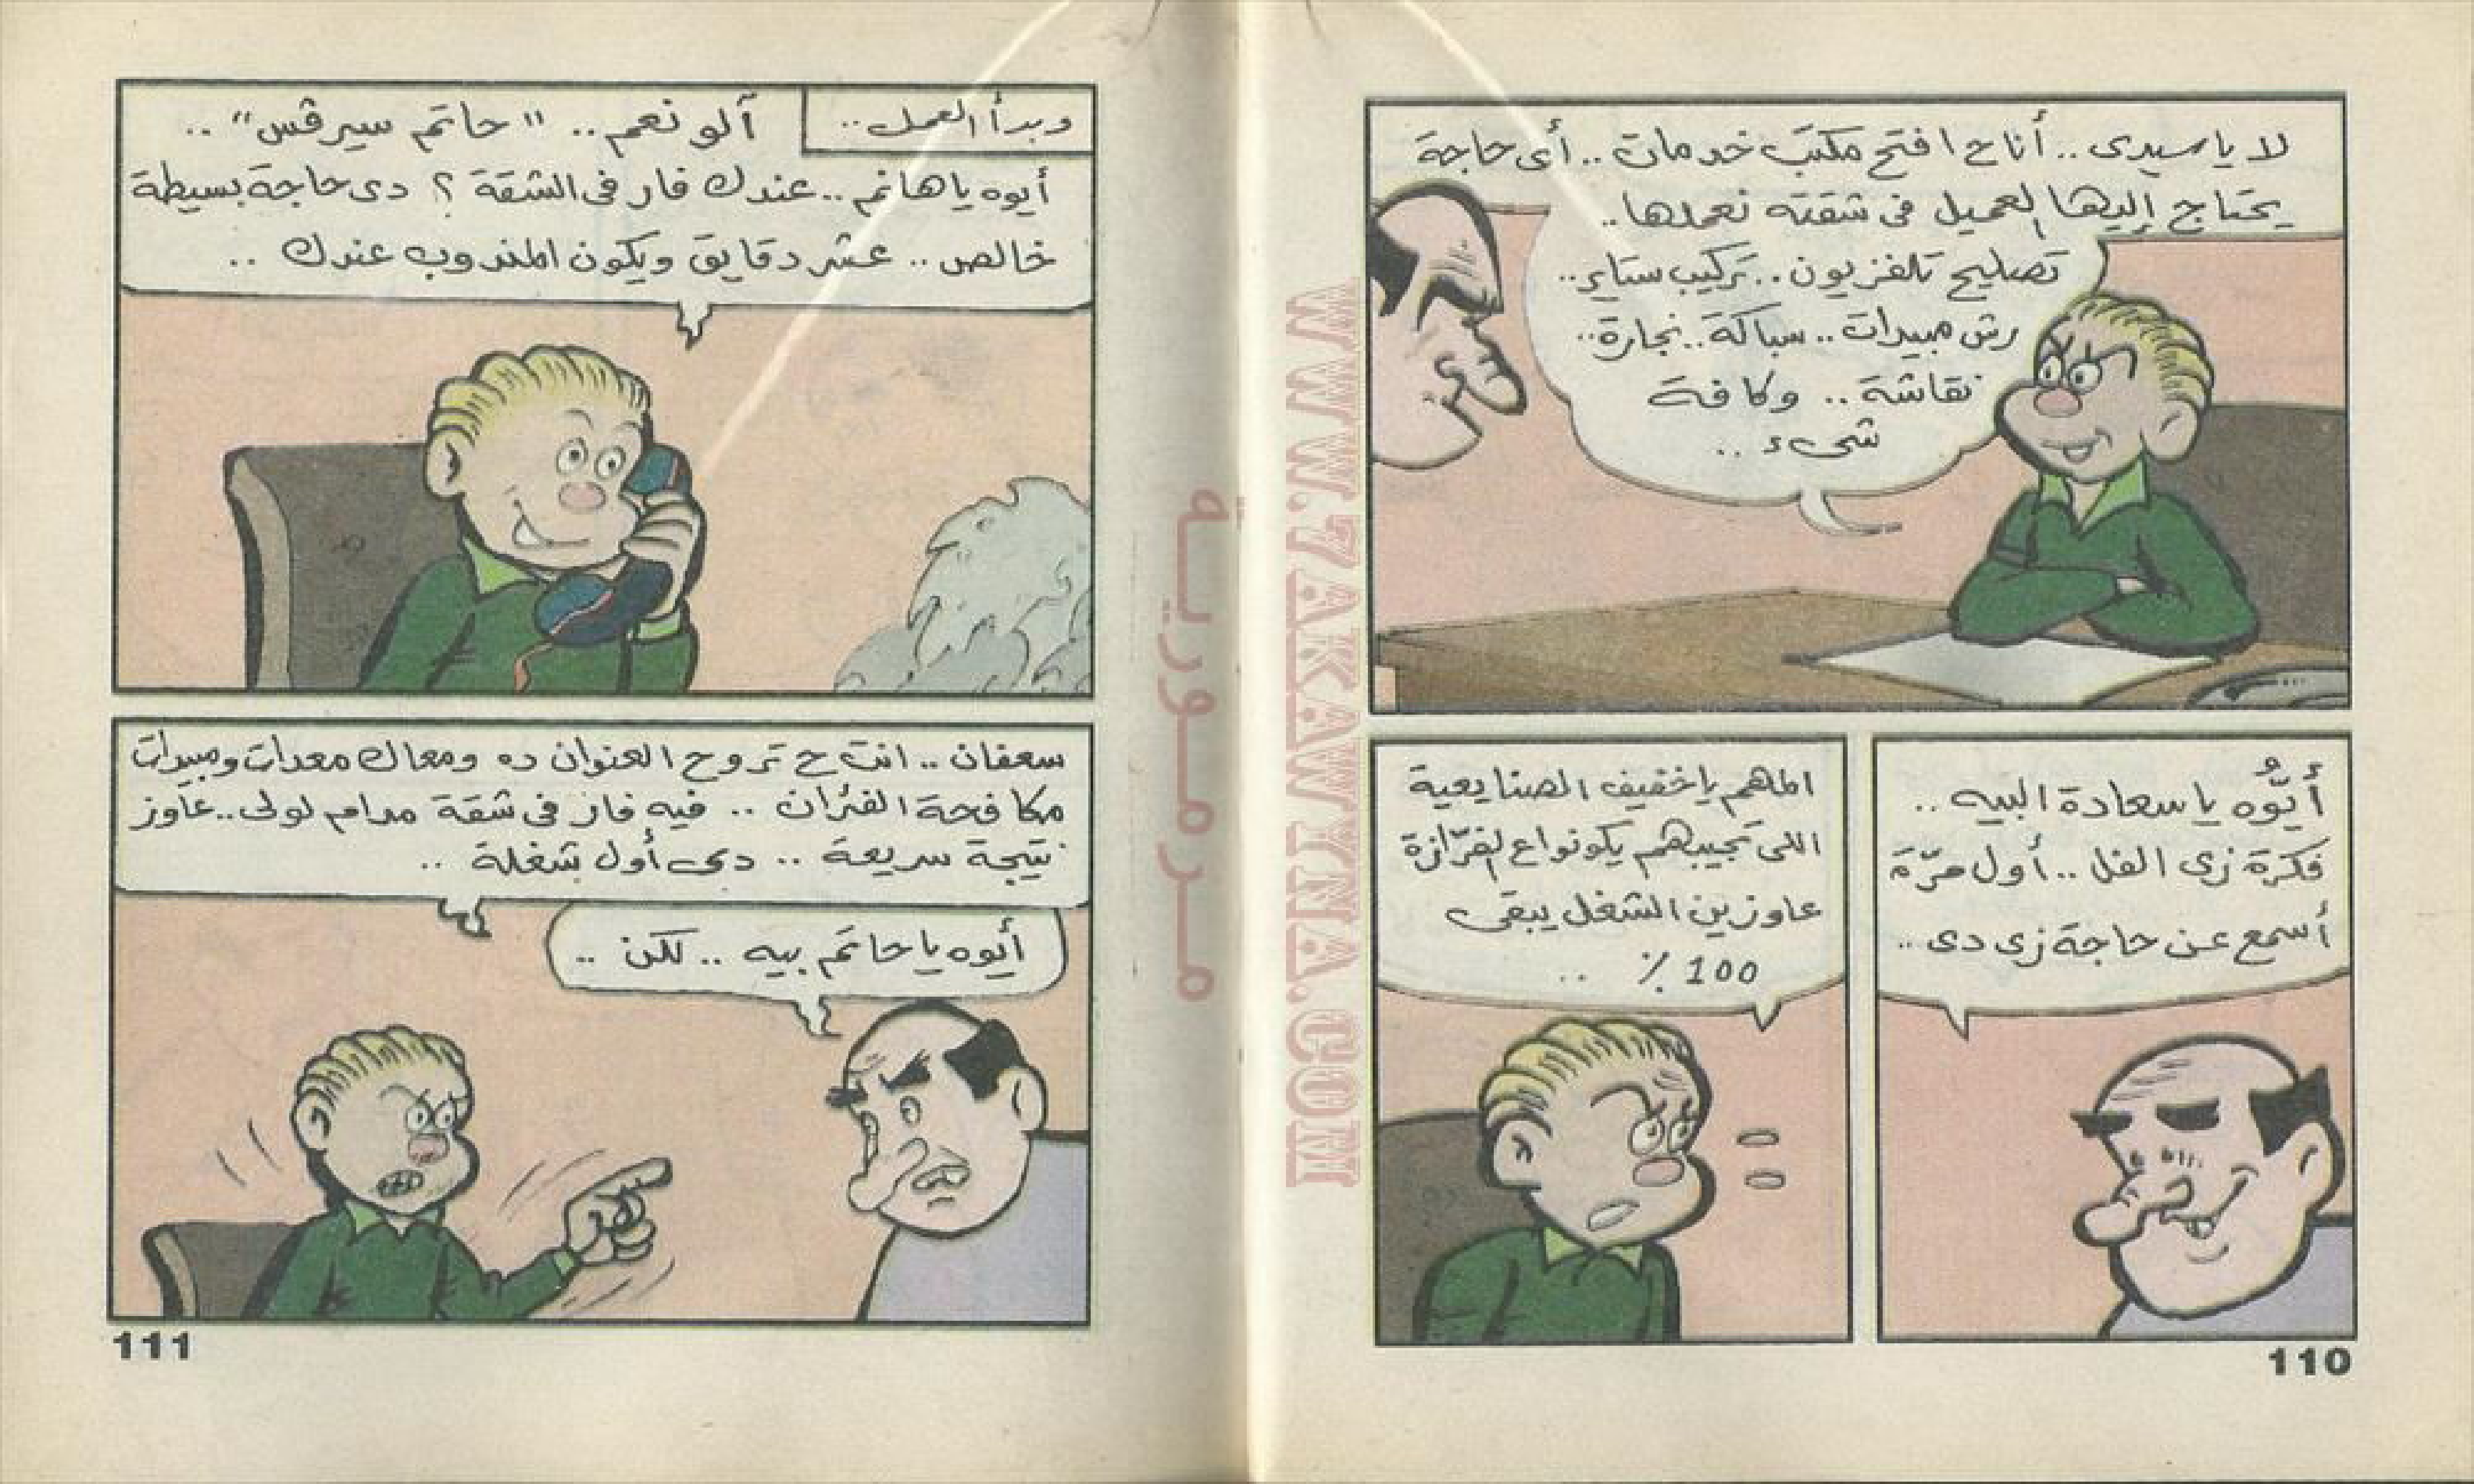 لا يا سيدى .. أنا ح افتح مكتب خدمات .. أى حاجة
يحتاج إليها العميل فى شقته نعملها ..
تصليح تلفزيون .. تركيب ستاير ..
رش مبيدات .. سباكة .. نجارة ..
نقاشة .. وكافة
شىء ..
أيّوُه يا سعادة البيه ..
فكرة زى الفل .. أول مرّة
أسمع عن حاجة زى دى ..
المهم يا خفيف الصنايعية
اللى تجيبهم يكونوا ع الفرّازة
عاوزين الشغل يبقى
100 ٪ ..
110
وبدأ العمل ..
آلو نعم .. "حاتم سيرڤس" ..
أيوه يا هانم .. عندك فار فى الشقة ؟ دى حاجة بسيطة
خالص .. عشر دقايق ويكون المندوب عندك ..
سعفان .. انت ح تروح العنوان ده ومعاك معدات ومبيدات
مكافحة الفئران .. فيه فار فى شقة مدام لولى .. عاوز
نتيجة سريعة .. دى أول شغلة ..
أيوه يا حاتم بيه .. لكن ..
111
مـرمـوريـة
WWW.7AKAWAINA.COM